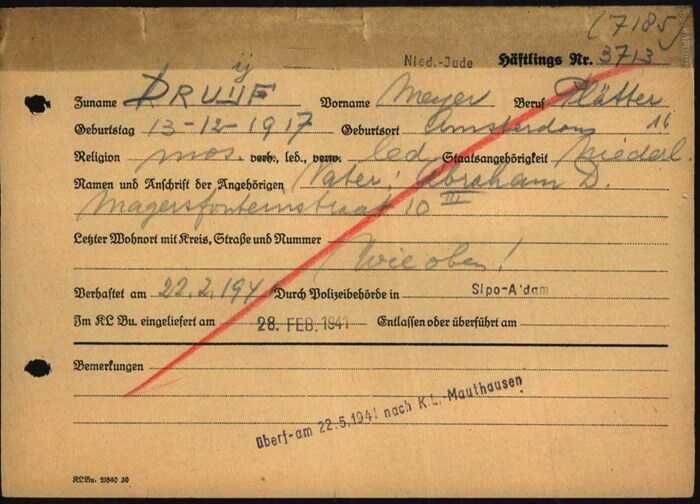 (7185)
Nied.-Jude Häftlings Nr. 3713
ij
Zuname DRUIJF Vorname Meyer Beruf Plätter
Geburtstag 13-12-1917 Geburtsort Amsterdam 16
Religion mos. verh., led., verw. led Staatsangehörigkeit Niederl.
Namen und Anschrift der Angehörigen Vater: Abraham D.
Magersfonteinstraat 10 III
Letzter Wohnort mit Kreis, Straße und Nummer
Wie oben!
Verhaftet am 22.2.1941 Durch Polizeibehörde in Sipo-A'dam
Im KL Bu. eingeliefert am 28. FEB. 1941 Entlassen oder überführt am
Bemerkungen
Überf. am 22.5.1941 nach K.L.-Mauthausen
KLBu.